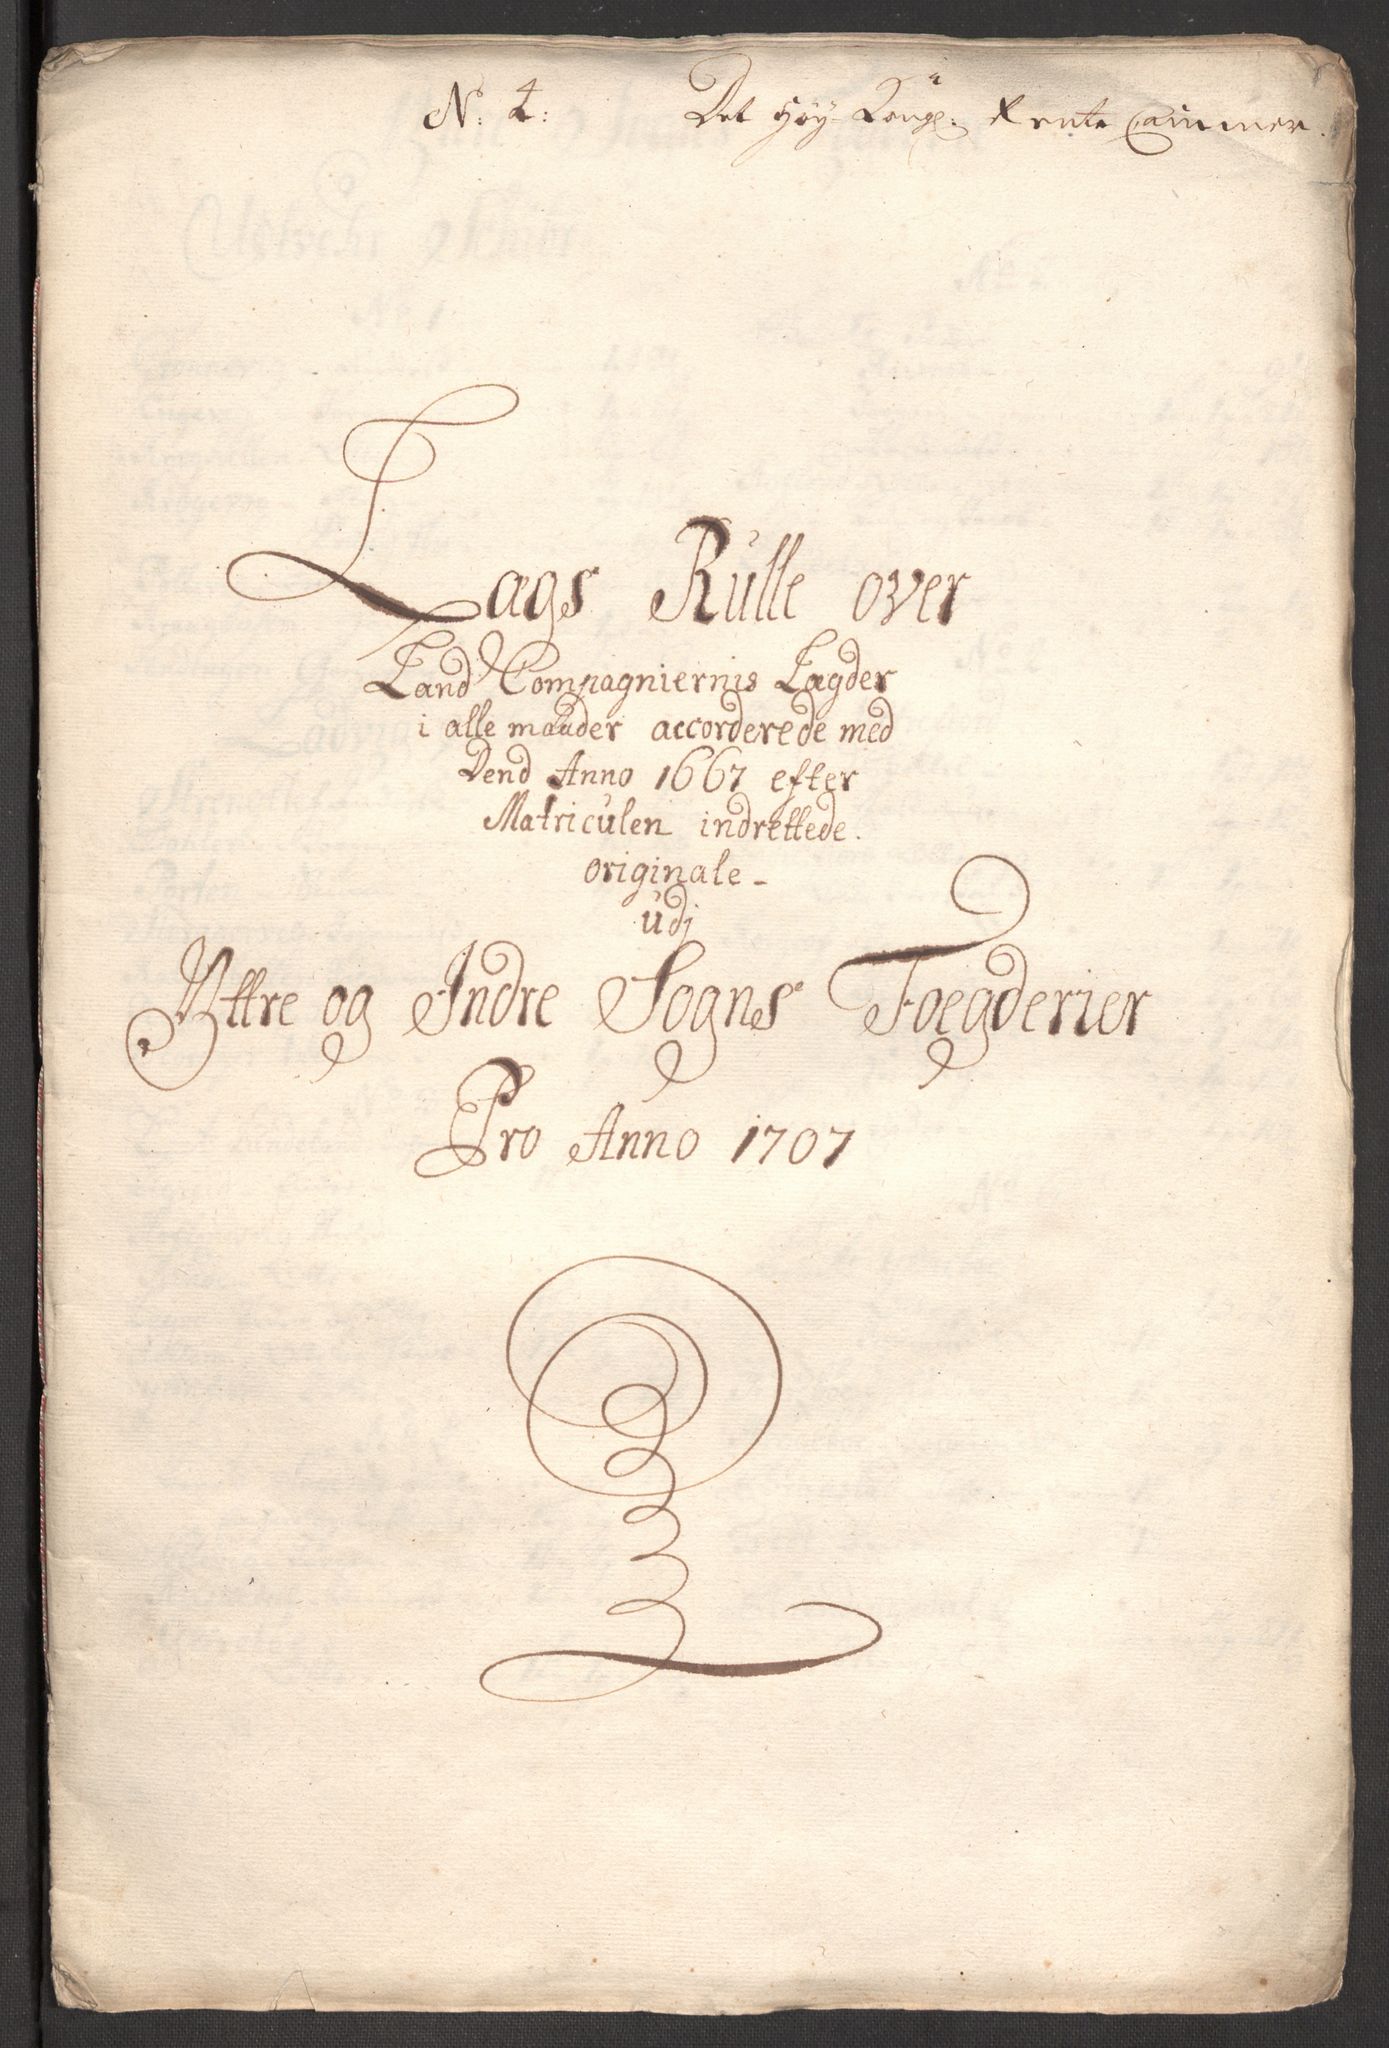 N. 4: Det Höy Kongl. Rente Cammer.
Lags Rulle over
Land Compagniernis Lagder
i alle maader accorderede med
Dend Anno 1667 efter
Matriculen indrettede.
originale -
udj
Yttre og Indre Sogns Foegderier
Pro Anno 1707